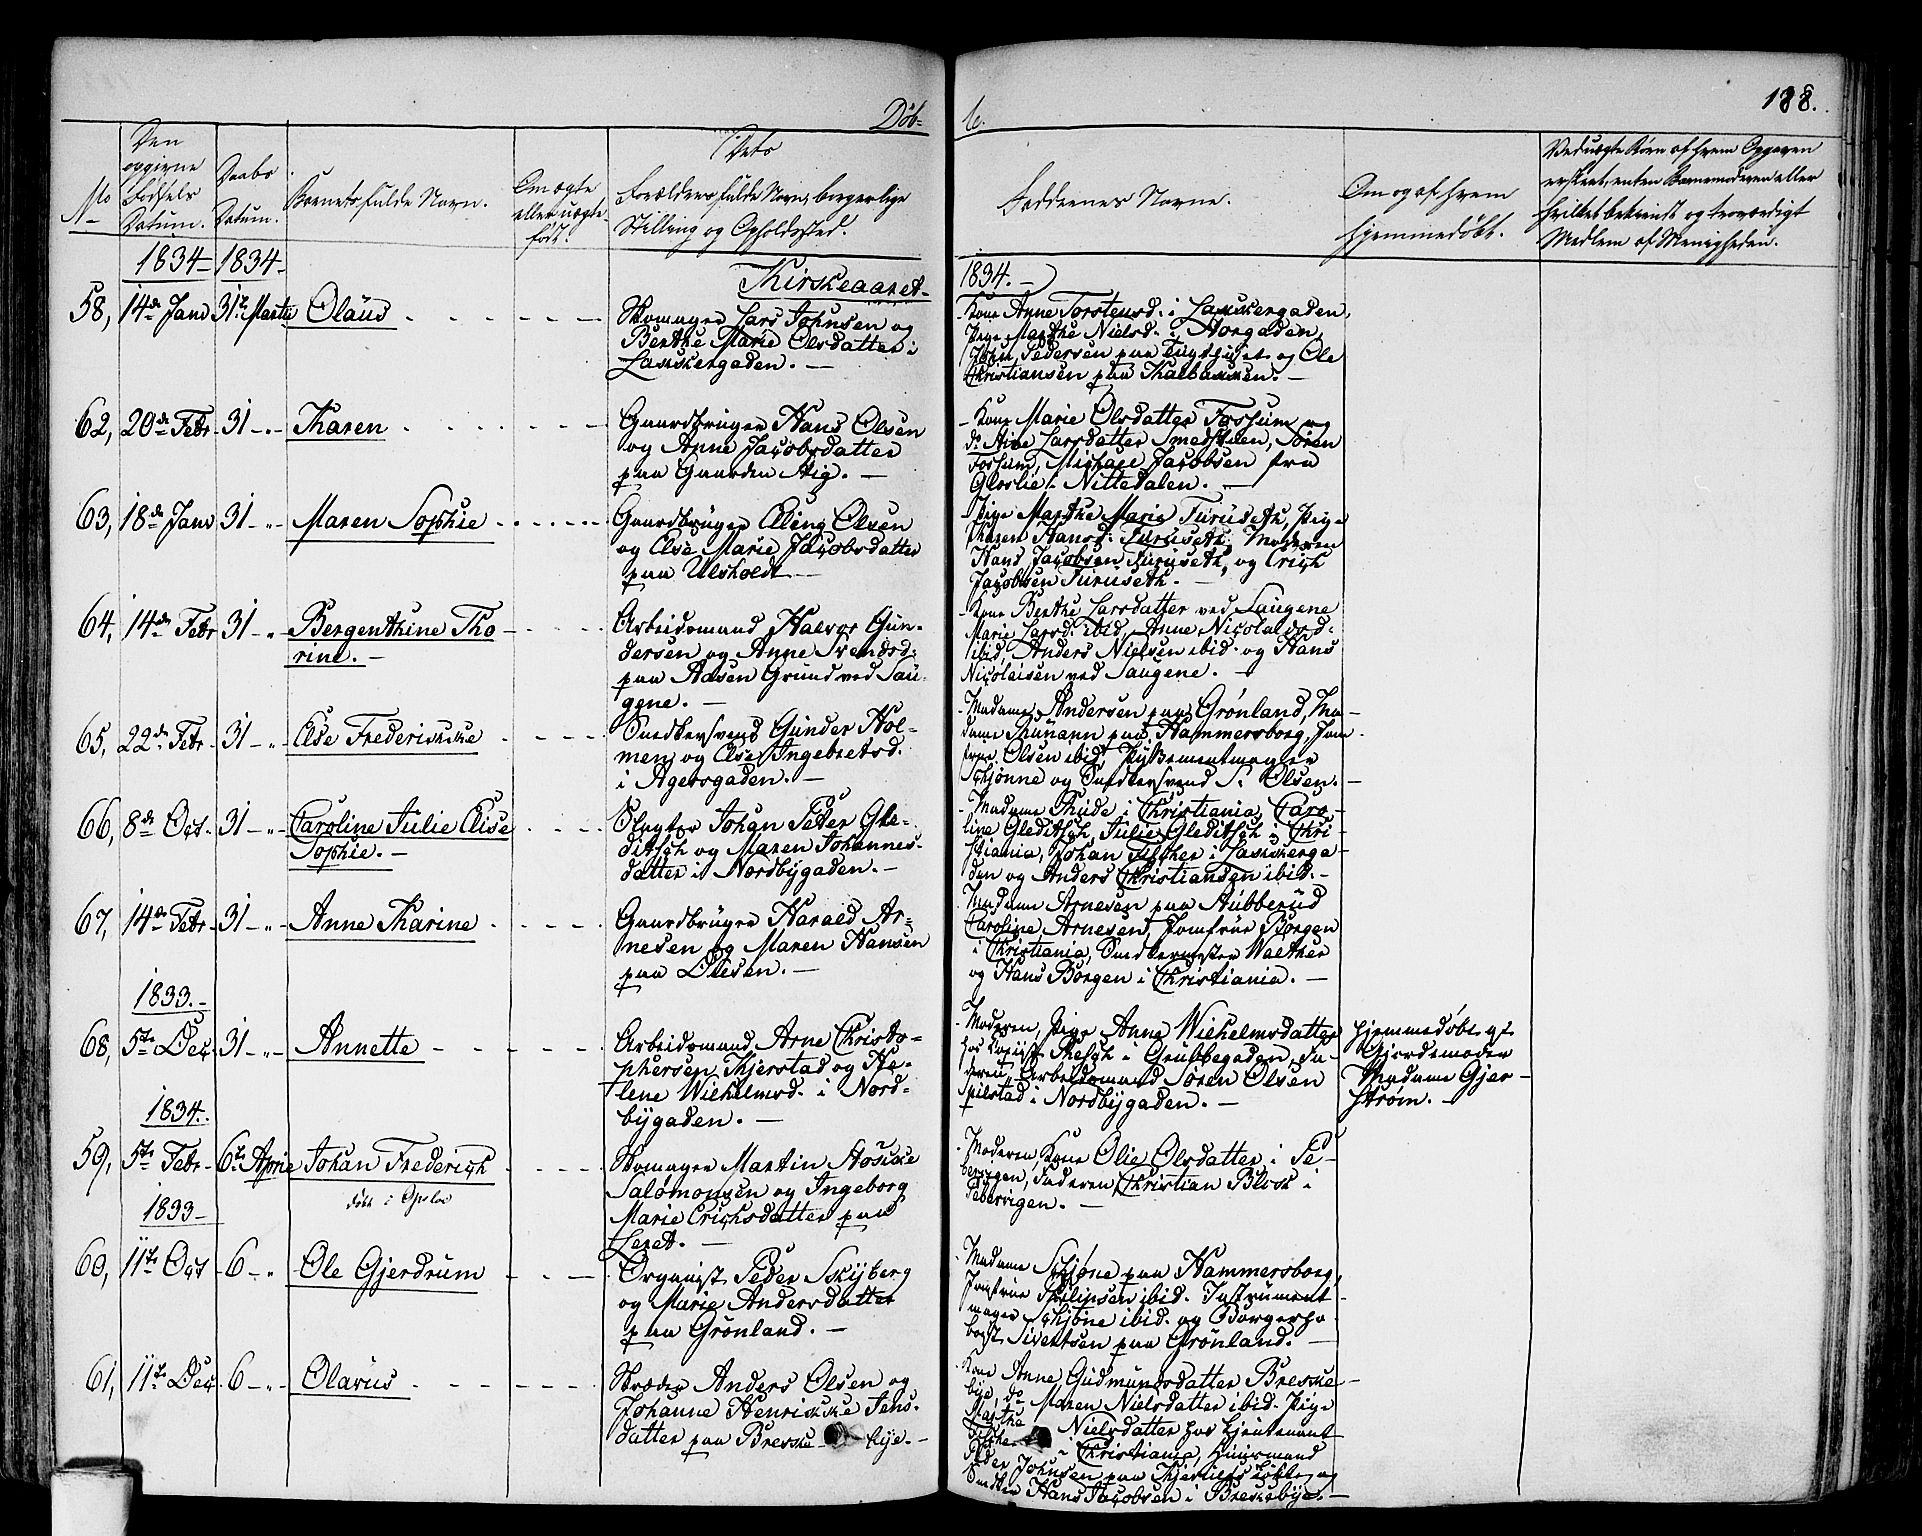 Døb-
te.
188.
No
Den
opgivne
Fødsels
Datum.
Daabs
Datum.
Barnets fulde Navn.
Om ægte
eller uægte
født.
Dets
Forældres fulde Navn, borgerlige
Stilling og Opholdssted.
Faddernes Navne.
Om og af hvem
hjemmedøbt.
Ved uægte Børn af hvem Opgaven
er skeet, enten Barnemoderen eller
hvilket bekiendt og troværdigt
Medlem af Menigheden.
1834 1834
Kirkeaaret 1834.
58, 14de Janr 31te Martii Olaus
Skomager Lars Johnsen og
Berthe Marie Olsdatter i
Lakkergaden.
Kone Anne Torstensd. i Lakkergaden,
Pige Marthe Nielsd. i Storgaden,
John Pedersen paa Tugthuset og Ole
Christiansen paa Kalbakken.
62, 20de Febr 31 Karen
Gaardbruger Hans Olsen
og Anne Jacobsdatter
paa Gaarden Aig.
Kone Marie Olsdatter Fossum og
do Larsdatter Smedstuen, Søren
Fossum, Michael Jacobsen fra
Nittedalen.
63, 18de Janr 31 Maren Sophie
Gaardbruger Elling Olsen
og Else Marie Jacobsdatter
paa Ulsholdt
Pige Marthe Marie Furuseth, Pige
Karen Hansd. Furuseth, Moderen
Hans Jacobsen Furuseth, og Erich
Jacobsen Furuseth.
64, 14de Febr 31 Bergenthine Tho
rine.
Arbeidsmand Halvor Gun-
dersen og Anne Svendsd.
paa Aasen Grund ved Sau-
gene.
Kone Berthe Larsdatter ved Saugene
Marie Larsd. ibid, Anne Nicolaisd.
ibid, Anders Nielsen ibid. og Hans
Nicolaisen ved Saugene.
65, 22de Febr 31 Else Frederikke
Snedkersvend Gunder Hol-
men og Else Ingebretsd.
i Agersgaden.
Madame Andersen paa Grønland, Ma-
dame Thumann paa Hammersborg, Jom-
frue Olsen ibid,
Schjønne og Snedkersvend S. Olsen.
66, 8de Oct. 31 Caroline Julie Elise
Sophie.
Slagter Johan Peter Gle-
ditsch og Maren Johannes-
datter i Nordbygaden.
Madame Thude i Christiania, Caro-
line Gleditsch, Julie Gleditsch i Chri-
stiania, Johan Fischer i Lakkerga-
den og Anders Christiansen ibid.
67, 14de Febr 31 Anne Karine
Gaardbruger Harald Ar-
nesen og Maren Hansen
paa Ølesen.
Madame Arnesen paa Stubberud
Caroline Arnesen, Jomfrue Borgen
i Christiania, Snedkermester Walther
og Hans Borgen i Christiania.
1833.
68, 5te Dec. 31 Annette
Arbeidsmand Arne Christo-
phersen Kjerstad og He-
lene Wilhelmsd. i Nord-
bygaden.
Moderen, Pige Anne Wilhelmsdatter
hos Copiist i Grubbegaden, Fa-
deren, Arbeidsmand Søren Olsen
Spilstad i Nordbygaden.
Hjemmedøbt af
Gjordemoder
Madame Gjer-
strøm.
1834.
59, 5te Febr 6te April Johan Frederich
død i Opslo
Skomager Martin
Salomonsen og Ingeborg
Marie Erichsdatter paa
Leret.
Moderen, Kone Olie Olsdatter i Pe-
bervigen, Faderen, Christian Block i
Pebervigen.
1833
60, 11te Oct 6 Ole Gjerdrum
Organist Peder Skyberg
og Marie Andersdatter
paa Grønland.
Madame Schjøne paa Hammersborg,
Jomfrue ibid. Instrument-
mager Schjøne ibid. og Borgerfo-
gst Sivertsen paa Grønland.
61, 11te Dec. 6 Olavus
Skræder Anders Olsen og
Johanne Henrikke Jens-
datter paa Brekke-bye.
Kone Anne Gudmundsdatter Brekke-
bye, do Maren Nielsdatter ibid. Pige
Marthe Nielsdatter hos Lieutenant
i Christiania, Huusmand
Peder Johnsen paa Løkke, og
Snedker Hans Jacobsen i Brekkebye.